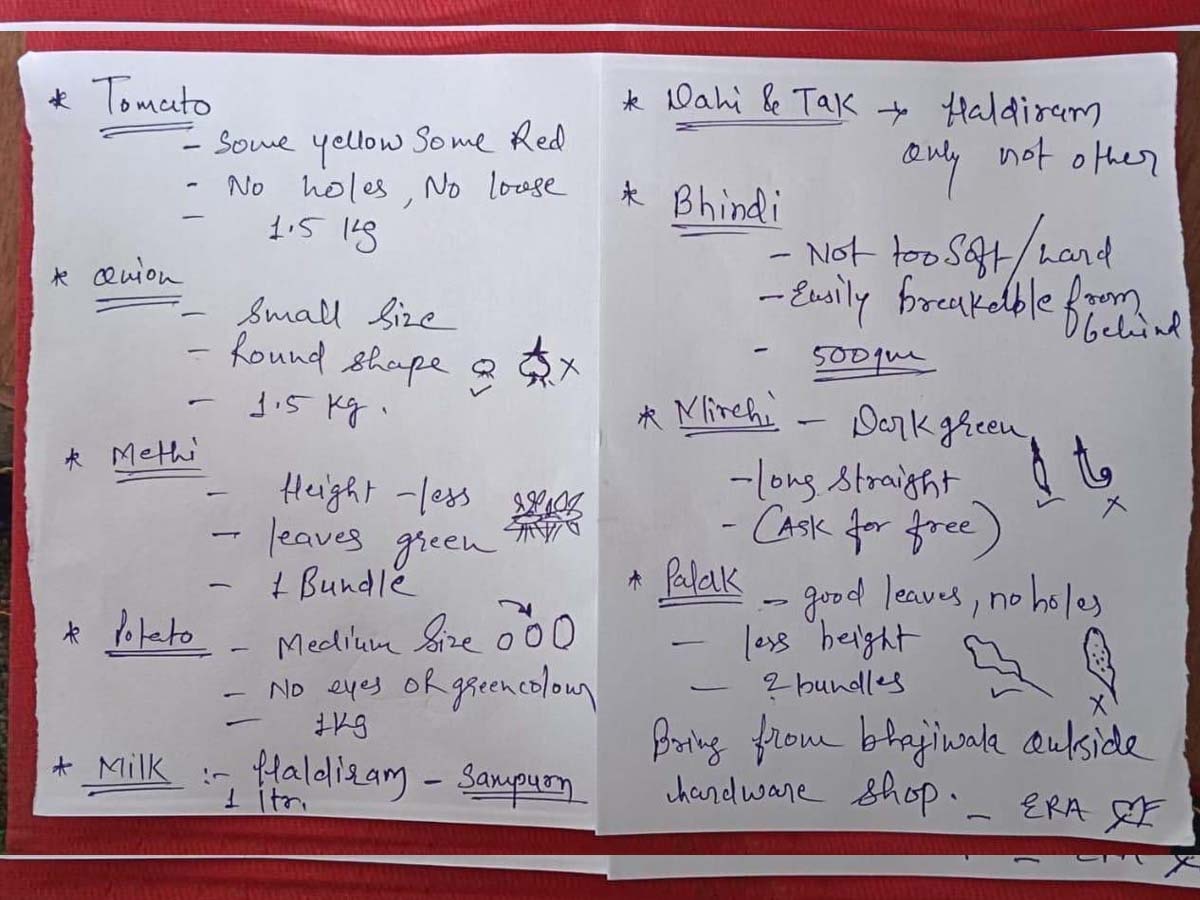 * Tomato
- Some yellow Some Red
- No holes, No loose
- 1.5 Kg
* Onion
- Small Size
- Round shape
- 1.5 Kg.
* Methi
- Height - less
- leaves green
- 1 Bundle
* Potato - Medium Size
- No eyes or green colour
- 1 Kg
* Milk :- Haldiram - Sampurn
1 ltr.
* Dahi & Tak → Haldiram
only not other
* Bhindi
- Not too Soft / hard
- Easily breakable from
behind
- 500gm
* Mirchi - Dark green
- long straight
- (Ask for free)
* Palak - good leaves, no holes
- less height
- 2 bundles
Bring from bhajiwala outside
hardware shop. - ERA